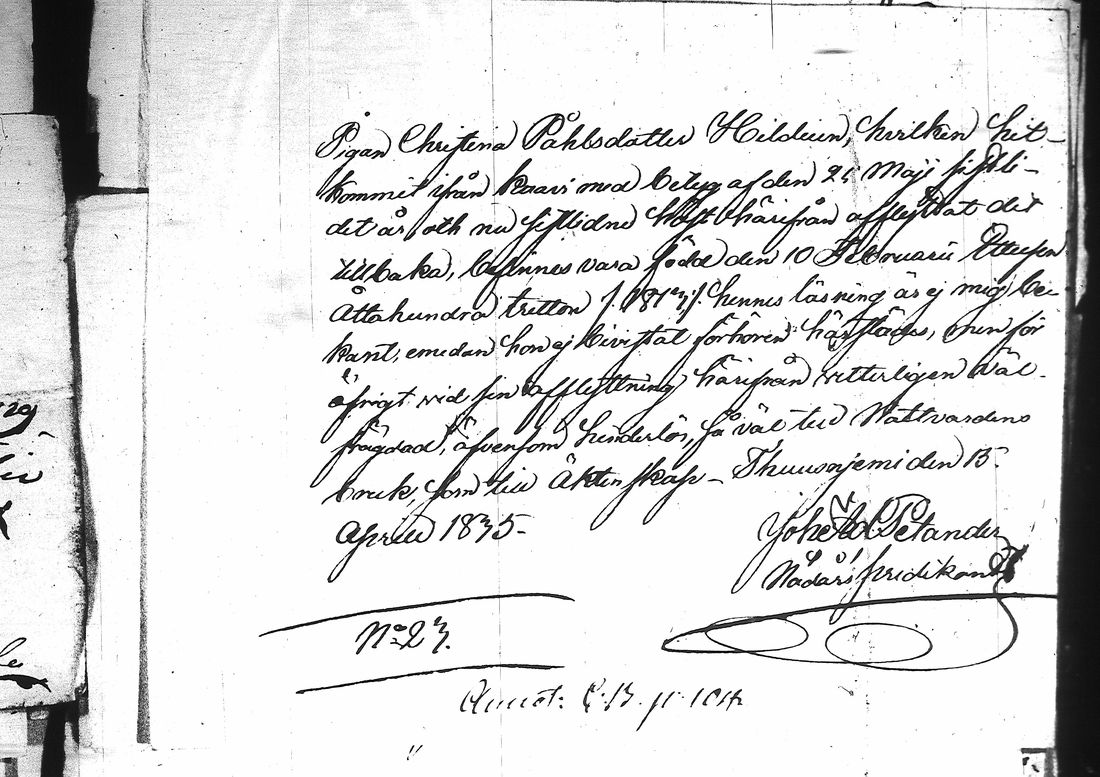 Pigan Christina Påhlsdotter Hildeen, hvilken hit-
kommit ifrån Kaavi med betyg af den 21 Maji sistli-
det år, och nu sistlidne höst härifrån afflyttat dit
tillbaka, befinnes vara född den 10 Februarii
Åttahundra tretton /. 1813 ./. hennes läsning är ej mig be-
kant, emedan hon ej bivistat förhören härstädes, men för
öfrigt vid sin afflyttning härifrån vitterligen väl-
frägdad, äfvensom hinderlös, så väl till Nattvardens
bruk, som till Äktenskap - Thuusnjemi den 15.
Aprill 1835-
Joh: Petander
Nådårs predikant
No 23.
Annot: C. B. p: 104